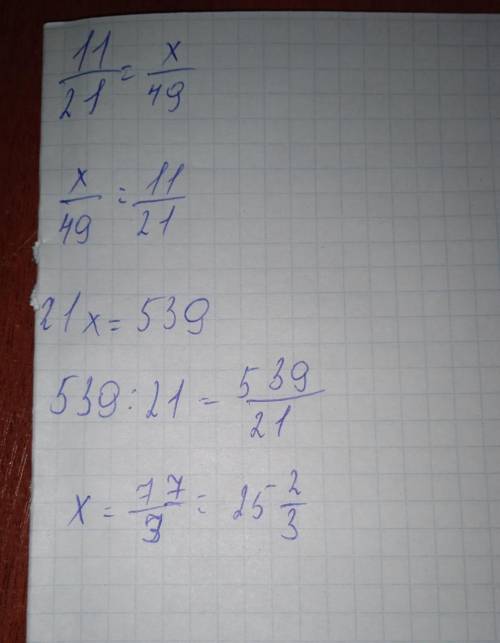 11/21 = x/49
x/49 = 11/21
21x = 539
539 : 21 = 539/21
x = 77/3 = 25 2/3